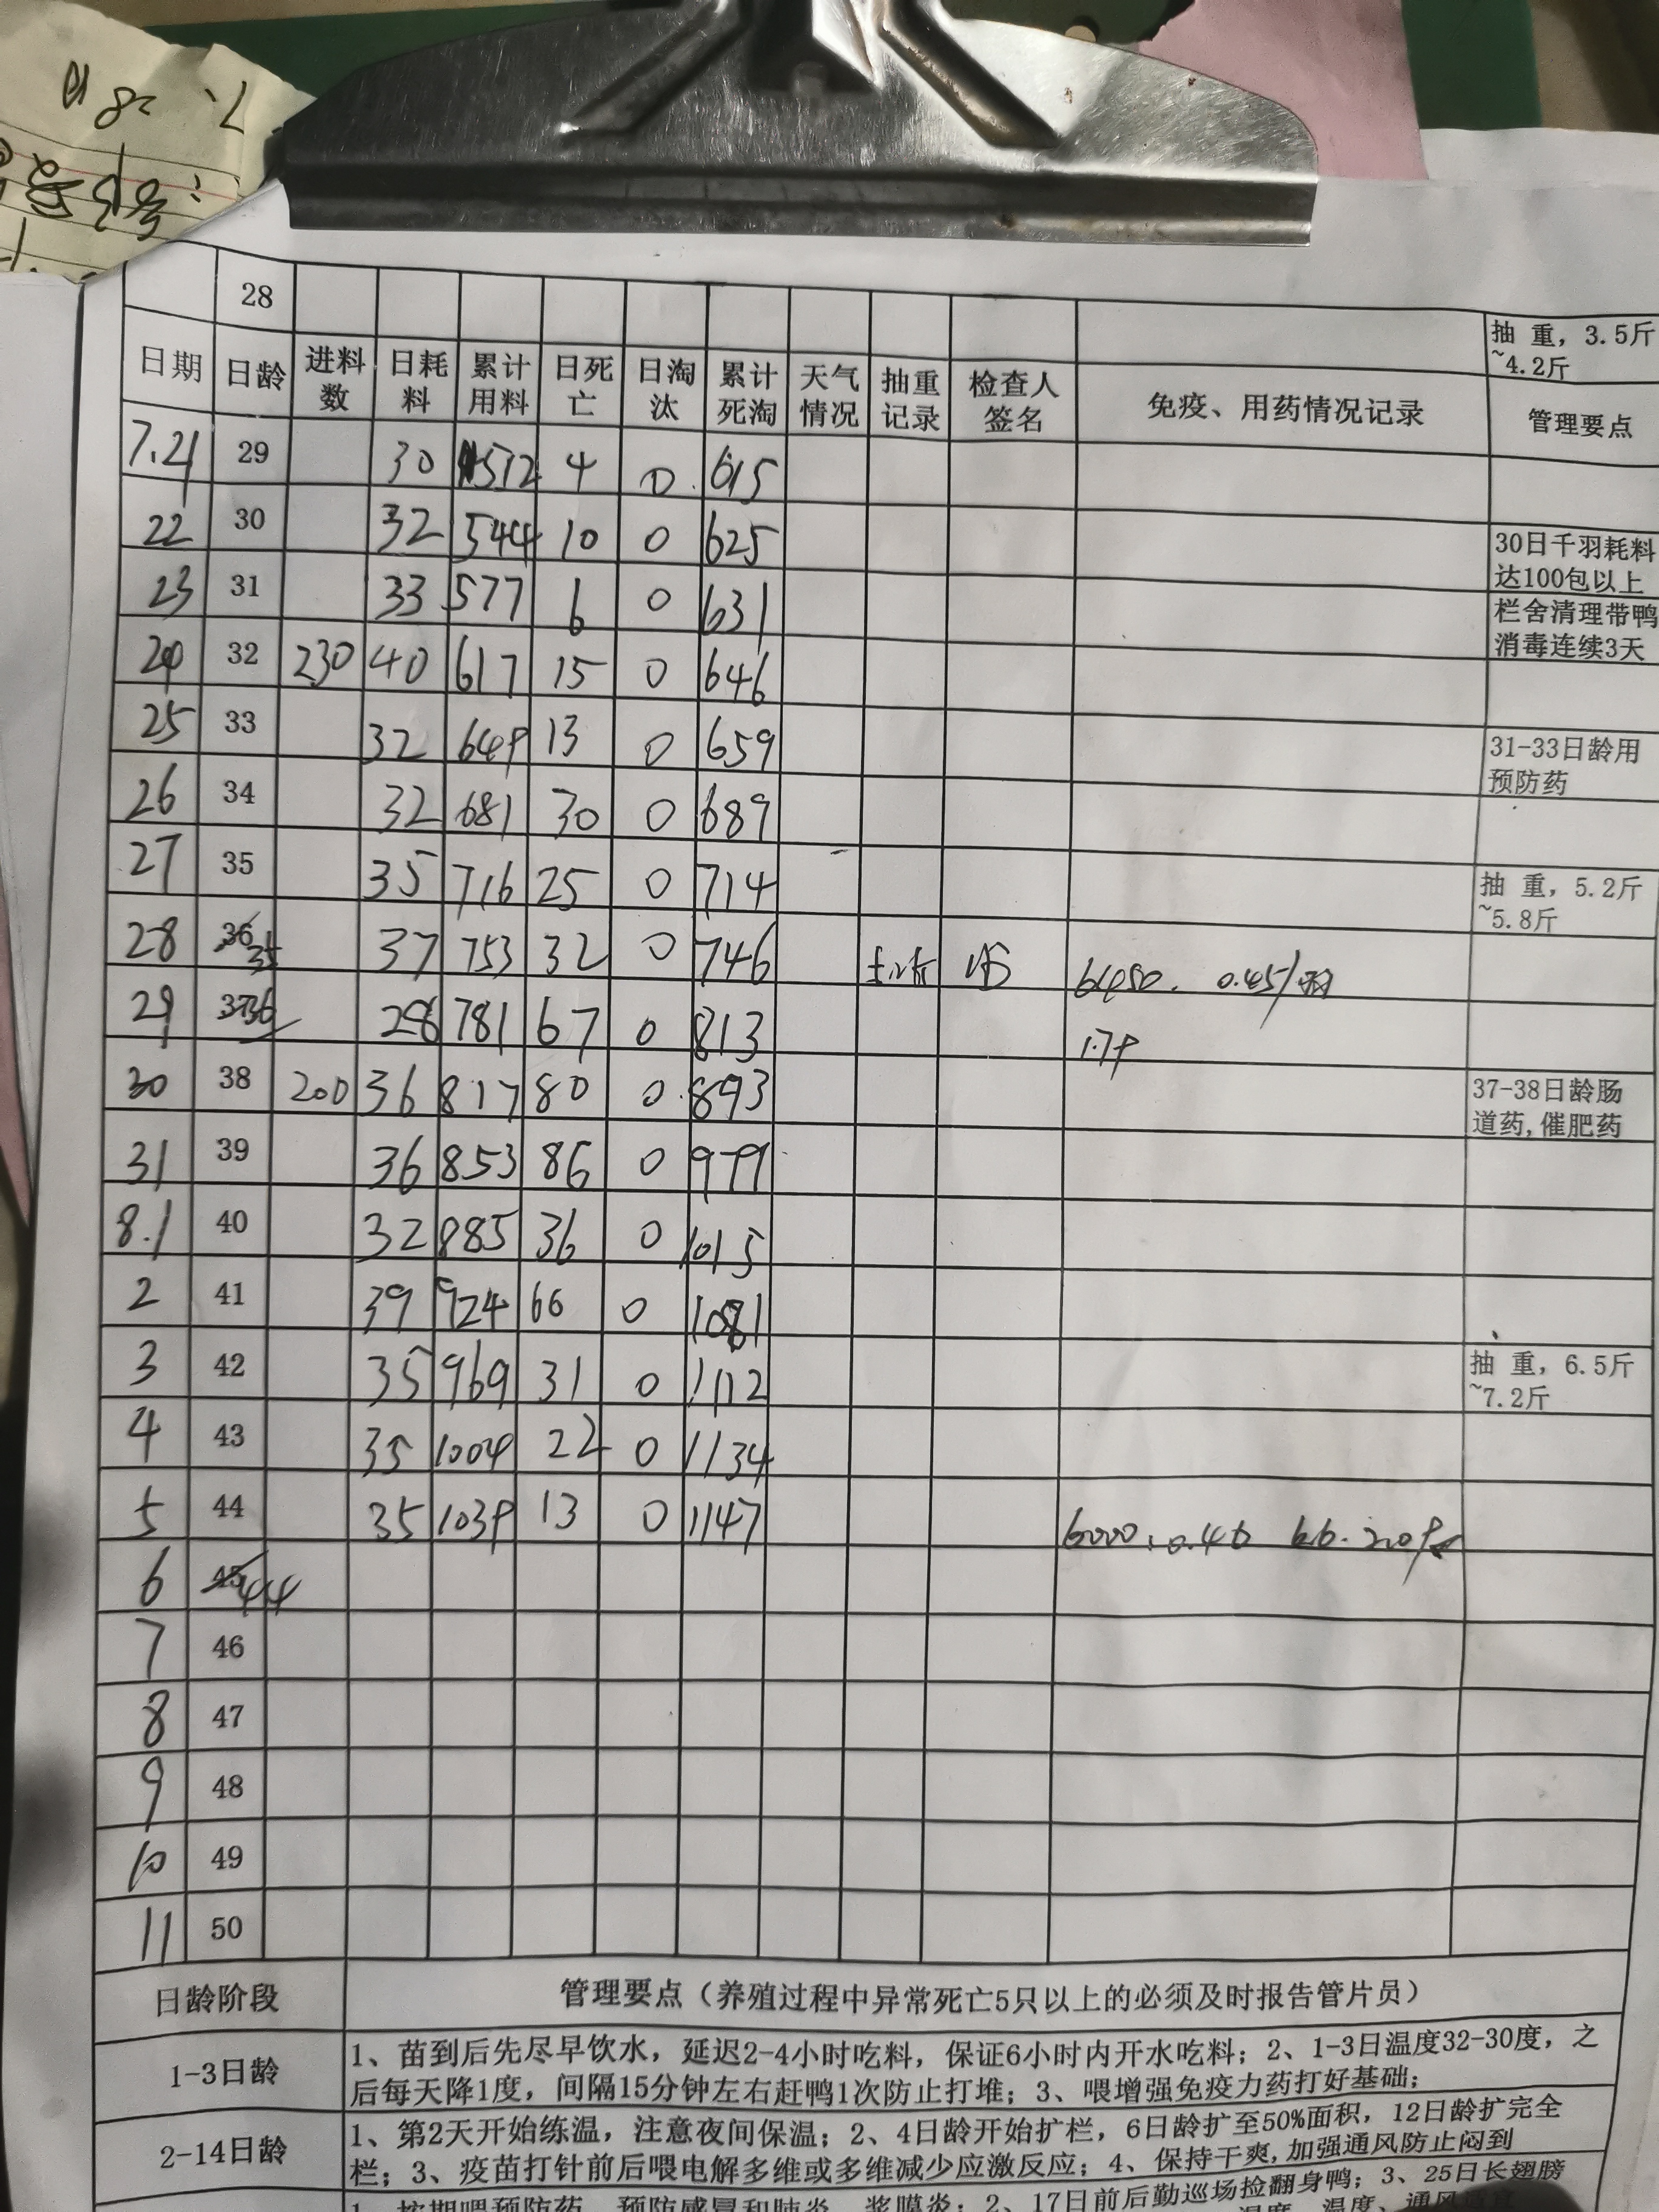 28
抽 重，3.5斤
~4.2斤
日期 日龄 进料数 日耗料 累计用料 日死亡 日淘汰 累计死淘 天气情况 抽重记录 检查人签名 免疫、用药情况记录 管理要点
7.21 29 30 512 4 0 615
22 30 32 544 10 0 625 30日千羽耗料
达100包以上
23 31 33 577 6 0 631 栏舍清理带鸭
消毒连续3天
24 32 230 40 617 15 0 646
25 33 32 649 13 0 659 31-33日龄用
预防药
26 34 32 681 30 0 689
27 35 35 716 25 0 714 抽 重，5.2斤
~5.8斤
28 36 35 37 753 32 0 746 0.45/羽
29 37 36 28 781 67 0 813 1.79
30 38 200 36 817 80 0 893 37-38日龄肠
道药,催肥药
31 39 36 853 86 0 979
8.1 40 32 885 36 0 1015
2 41 39 924 66 0 1081
3 42 35 969 31 0 1112 抽 重，6.5斤
~7.2斤
4 43 35 1004 22 0 1134
5 44 35 1039 13 0 1147 6000. 0.46
6 45 44
7 46
8 47
9 48
10 49
11 50
日龄阶段 管理要点（养殖过程中异常死亡5只以上的必须及时报告管片员）
1-3日龄 1、苗到后先尽早饮水，延迟2-4小时吃料，保证6小时内开水吃料；2、1-3日温度32-30度，之
后每天降1度，间隔15分钟左右赶鸭1次防止打堆；3、喂增强免疫力药打好基础；
2-14日龄 1、第2天开始练温，注意夜间保温；2、4日龄开始扩栏，6日龄扩至50%面积，12日龄扩完全
栏；3、疫苗打针前后喂电解多维或多维减少应激反应；4、保持干爽,加强通风防止闷到
1、按期喂预防药，预防感冒和肺炎、浆膜炎；2、17日前后勤巡场捡翻身鸭；3、25日长翅膀